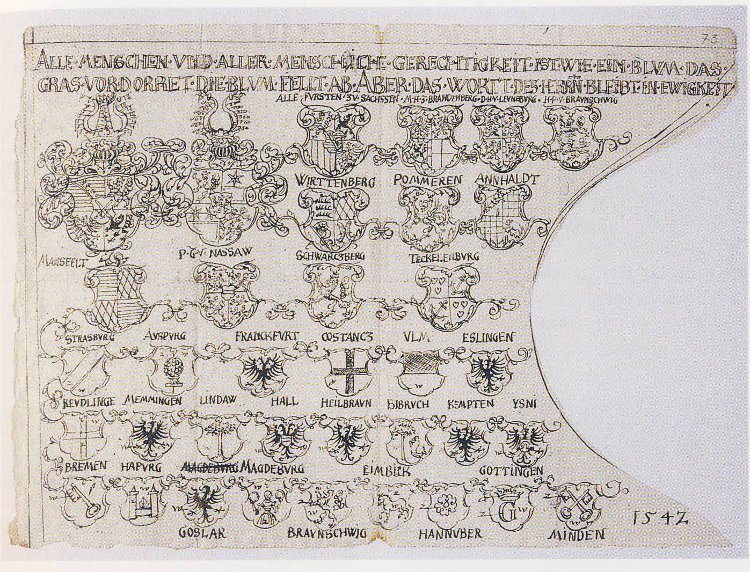 73
ALLE·MENSCHEN·VND·ALLER·MENSCHLICHE·GERECHTIGKEIT·IST·WIE·EIN·BLVM·DAS·
GRAS·VORDORRET·DIE·BLVM·FELLT·AB·ABER·DAS·WORTT·DES·HERRN·BLEIBT·IN·EWIGKEIT
ALLE·FVRSTEN·ZV·SACHSSEN·M·H·Z·BRANDENBERG·D·H·V·LEVNEBVRG·H·P·V·BRAVNSCHWIG
WIRTTENBERG POMMEREN ANNHALDT
MANSFELT P·G·V·NASSAW SCHWARCZBERG TECKELENBVRG
STRASBVRG AVSPVRG FRANCKFVRT COSTANCZ VLM ESLINGEN
REVDLINGE MEMMINGEN LINDAW HALL HEILBRAVN BIBRVCH KEMPTEN YSNI
BREMEN HAPVRG MAGDEBVRG MAGDEBVRG EIMBICK GOTTINGEN
GOSLAR BRAVNSCHWIG HANNVBER MINDEN
G
1542